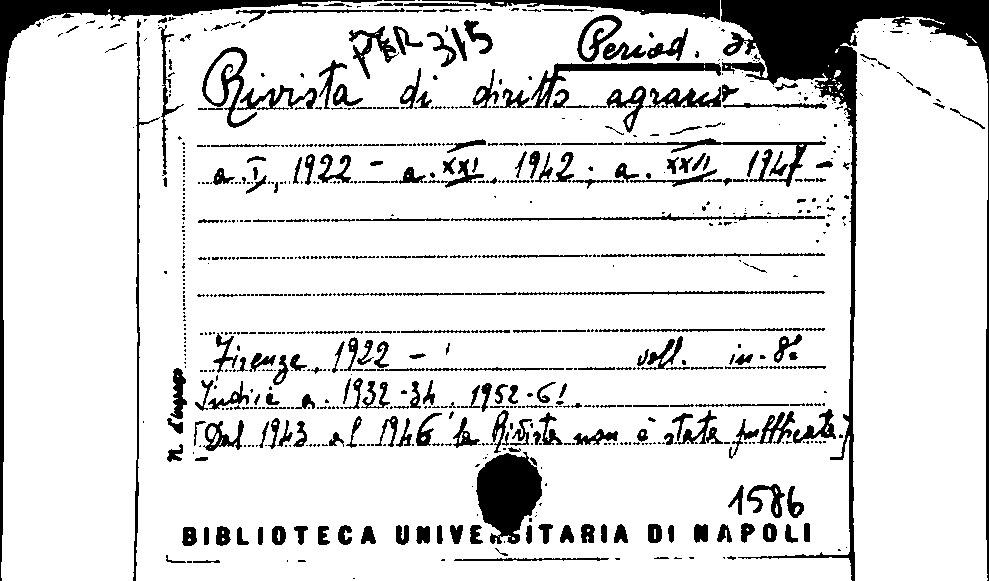 PER 315
Period.
Rivista di diritto agrario.
a. I, 1922 - a. XXI, 1942; a. XXII, 1947 -
Firenze, 1922 - voll. in-8º
Indici a. 1932-34. 1952-61.
[Dal 1943 al 1946 la Rivista non è stata pubblicata.]
N. d'ingresso
1586
BIBLIOTECA UNIVERSITARIA DI NAPOLI